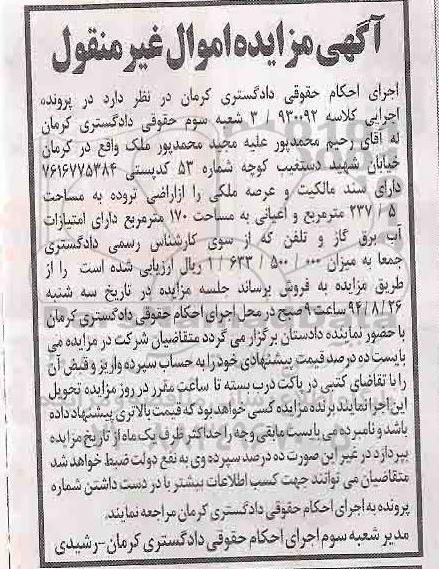 آگهی مزایده اموال غیر منقول
اجرای احکام حقوقی دادگستری کرمان در نظر دارد در پرونده
اجرایی کلاسه ۹۳۰۰۹۲ / ۳ شعبه سوم حقوقی دادگستری کرمان
له آقای رحیم محمدپور علیه مجید محمدپور ملک واقع در کرمان
خیابان شهید دستغیب کوچه شماره ۵۳ کدپستی ۷۶۱۶۷۷۵۳۸۴
دارای سند مالکیت و عرصه ملکی را ازاراضی تروده به مساحت
۵ / ۲۳۷ مترمربع و اعیانی به مساحت ۱۷۰ مترمربع دارای امتیازات
آب برق گاز و تلفن که از سوی کارشناس رسمی دادگستری
جمعا به میزان ۰۰۰ / ۵۰۰ / ۶۳۳ / ۱ ریال ارزیابی شده است را از
طریق مزایده به فروش برساند جلسه مزایده در تاریخ سه شنبه
۹۴/۸/۲۶ ساعت ۹ صبح در محل اجرای احکام حقوقی دادگستری کرمان
با حضور نماینده دادستان برگزار می گردد متقاضیان شرکت در مزایده می
بایست ده درصد قیمت پیشنهادی خود را به حساب سپرده واریز و قبض آن
را با تقاضای کتبی در پاکت درب بسته تا ساعت مقرر در روز مزایده تحویل
این اجرا نمایند برنده مزایده کسی خواهد بود که قیمت بالاتری پیشنهاد داده
باشد و نامبرده می بایست مابقی وجه را حداکثر ظرف یک ماه از تاریخ مزایده
بپردازد در غیر این صورت ده درصد سپرده وی به نفع دولت ضبط خواهد شد
متقاضیان می توانند جهت کسب اطلاعات بیشتر با در دست داشتن شماره
پرونده به اجرای احکام حقوقی دادگستری کرمان مراجعه نمایند.
مدیر شعبه سوم اجرای احکام حقوقی دادگستری کرمان -رشیدی